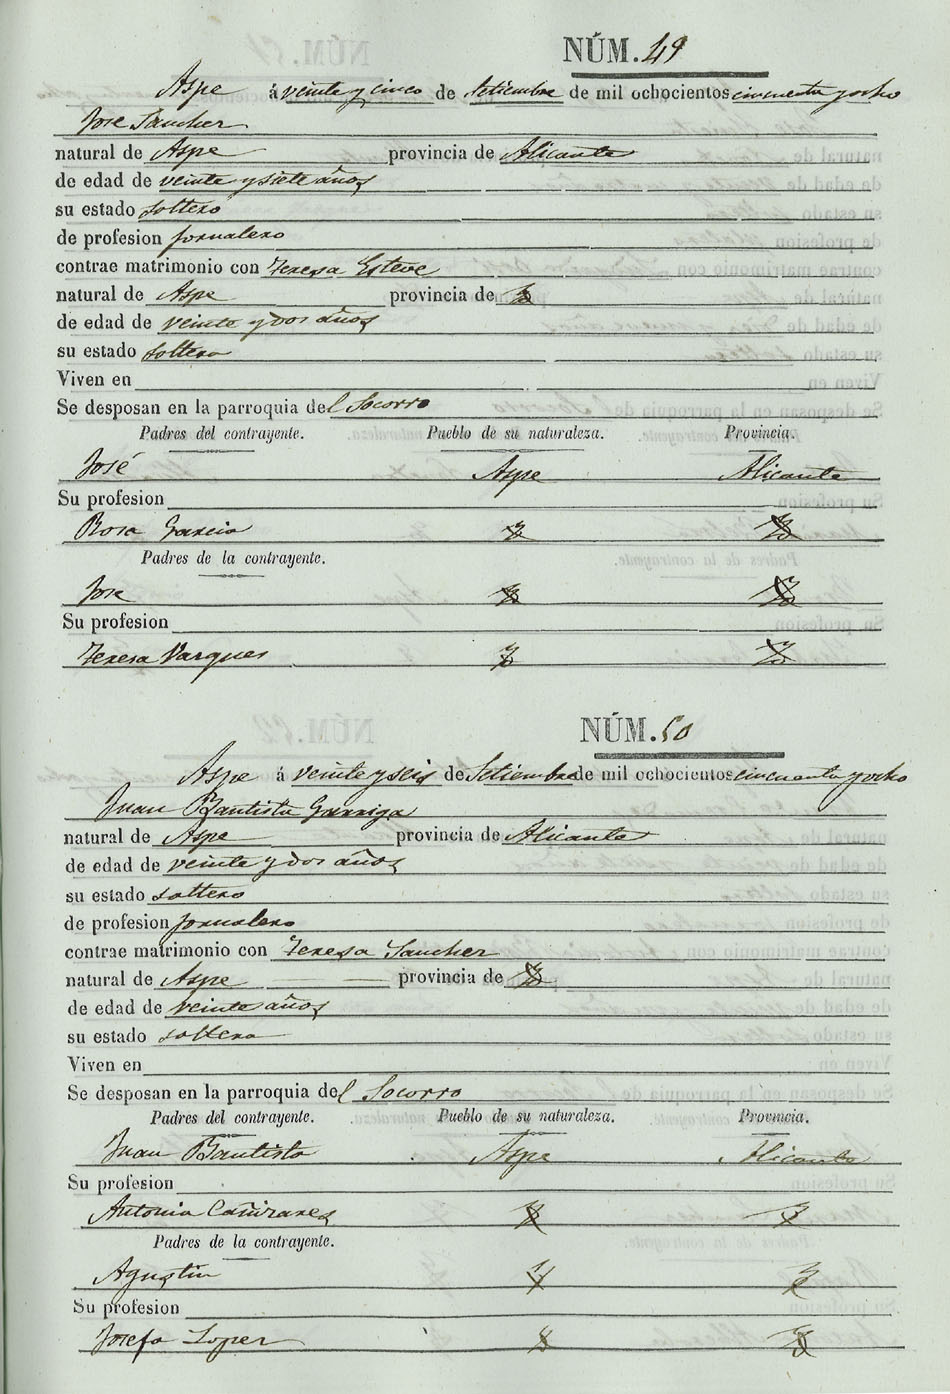 NÚM. 49
Aspe á veinte y cinco de Setiembre de mil ochocientos cincuenta y ocho
Jose Sancher
natural de Aspe provincia de Alicante
de edad de veinte y siete años
su estado soltero
de profesion jornalero
contrae matrimonio con Teresa Esteve
natural de Aspe provincia de
de edad de veinte y dos años
su estado soltera
Viven en
Se desposan en la parroquia del Socorro
Padres del contrayente. Pueblo de su naturaleza. Provincia.
José Aspe Alicante
Su profesion
Rosa Garcia
Padres de la contrayente.
Jose
Su profesion
Teresa Vargues
NÚM. 50
Aspe á veinte y seis de Setiembre de mil ochocientos cincuenta y ocho
Juan Bautista Garriga
natural de Aspe provincia de Alicante
de edad de veinte y dos años
su estado soltero
de profesion jornalero
contrae matrimonio con Teresa Sancher
natural de Aspe provincia de
de edad de veinte años
su estado soltera
Viven en
Se desposan en la parroquia del Socorro
Padres del contrayente. Pueblo de su naturaleza. Provincia.
Juan Bautista Aspe Alicante
Su profesion
Antonia Cañizares
Padres de la contrayente.
Agustin
Su profesion
Josefa Loper